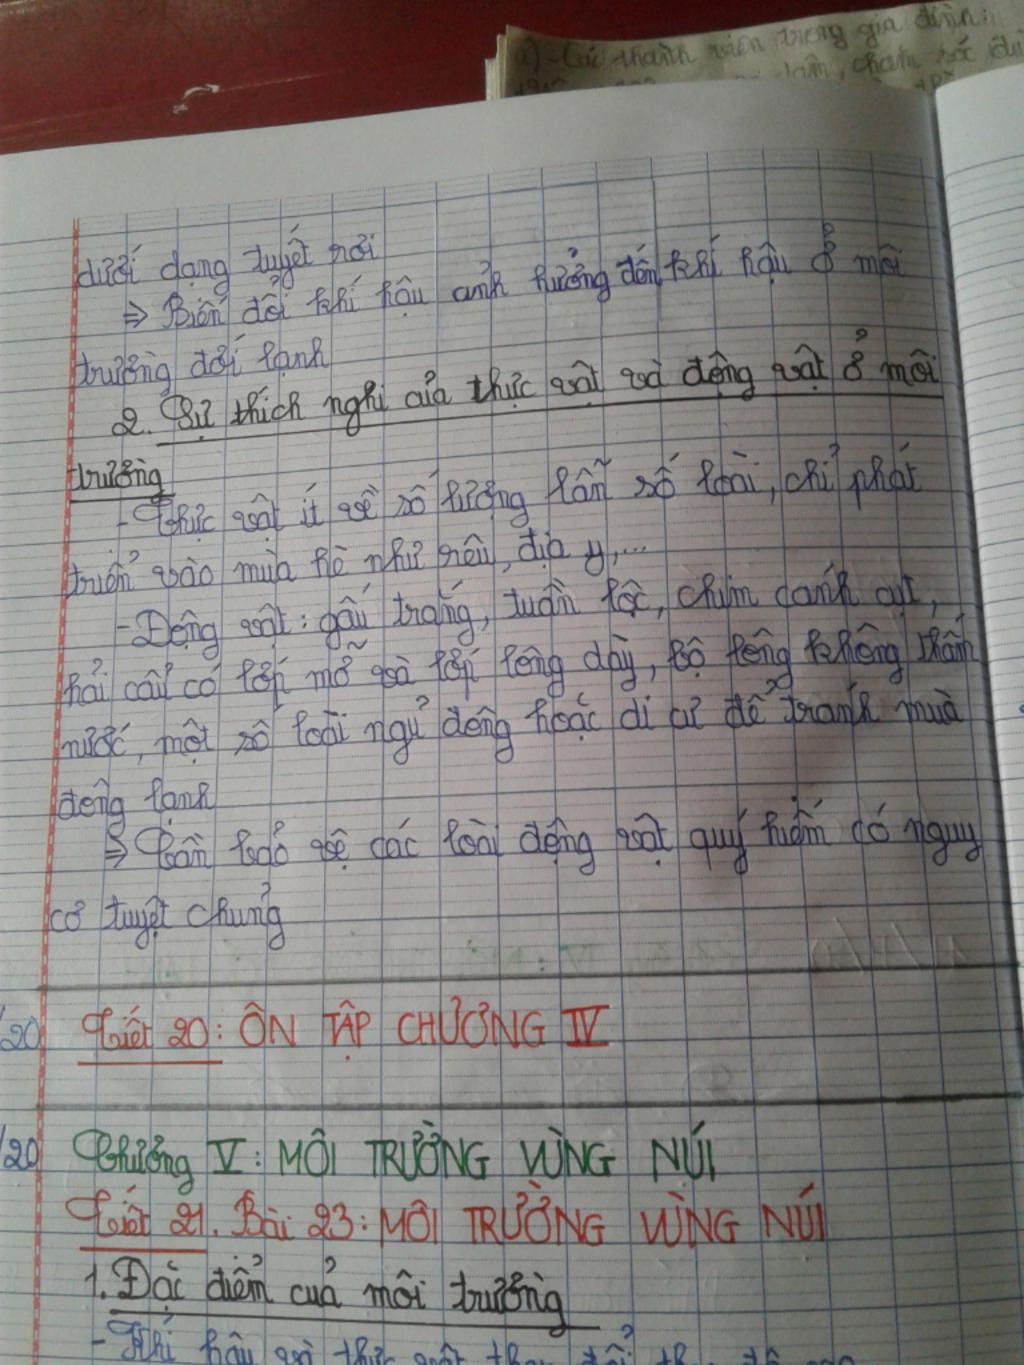 a) - Các thành viên trong gia đình:
làm, chăm sóc
dưới dạng tuyết rơi
⇒ Biến đổi khí hậu ảnh hưởng đến khí hậu ở môi
trường đới lạnh
2. Sự thích nghi của thực vật và động vật ở môi
trường
- Thực vật ít về số lượng lẫn số loài, chỉ phát
triển vào mùa hè như rêu, địa y,...
- Động vật: gấu trắng, tuần lộc, chim cánh cụt,
hải cẩu có lớp mỡ và lớp lông dày, bộ lông không thấm
nước, một số loài ngủ đông hoặc di cư để tránh mùa
đông lạnh
⇒ Cần bảo vệ các loài động vật quý hiếm có nguy
cơ tuyệt chủng
/20 Tiết 20: ÔN TẬP CHƯƠNG IV
/20 Chương V: MÔI TRƯỜNG VÙNG NÚI
Tiết 21. Bài 23: MÔI TRƯỜNG VÙNG NÚI
1. Đặc điểm của môi trường
- Khí hậu và thực vật thay đổi